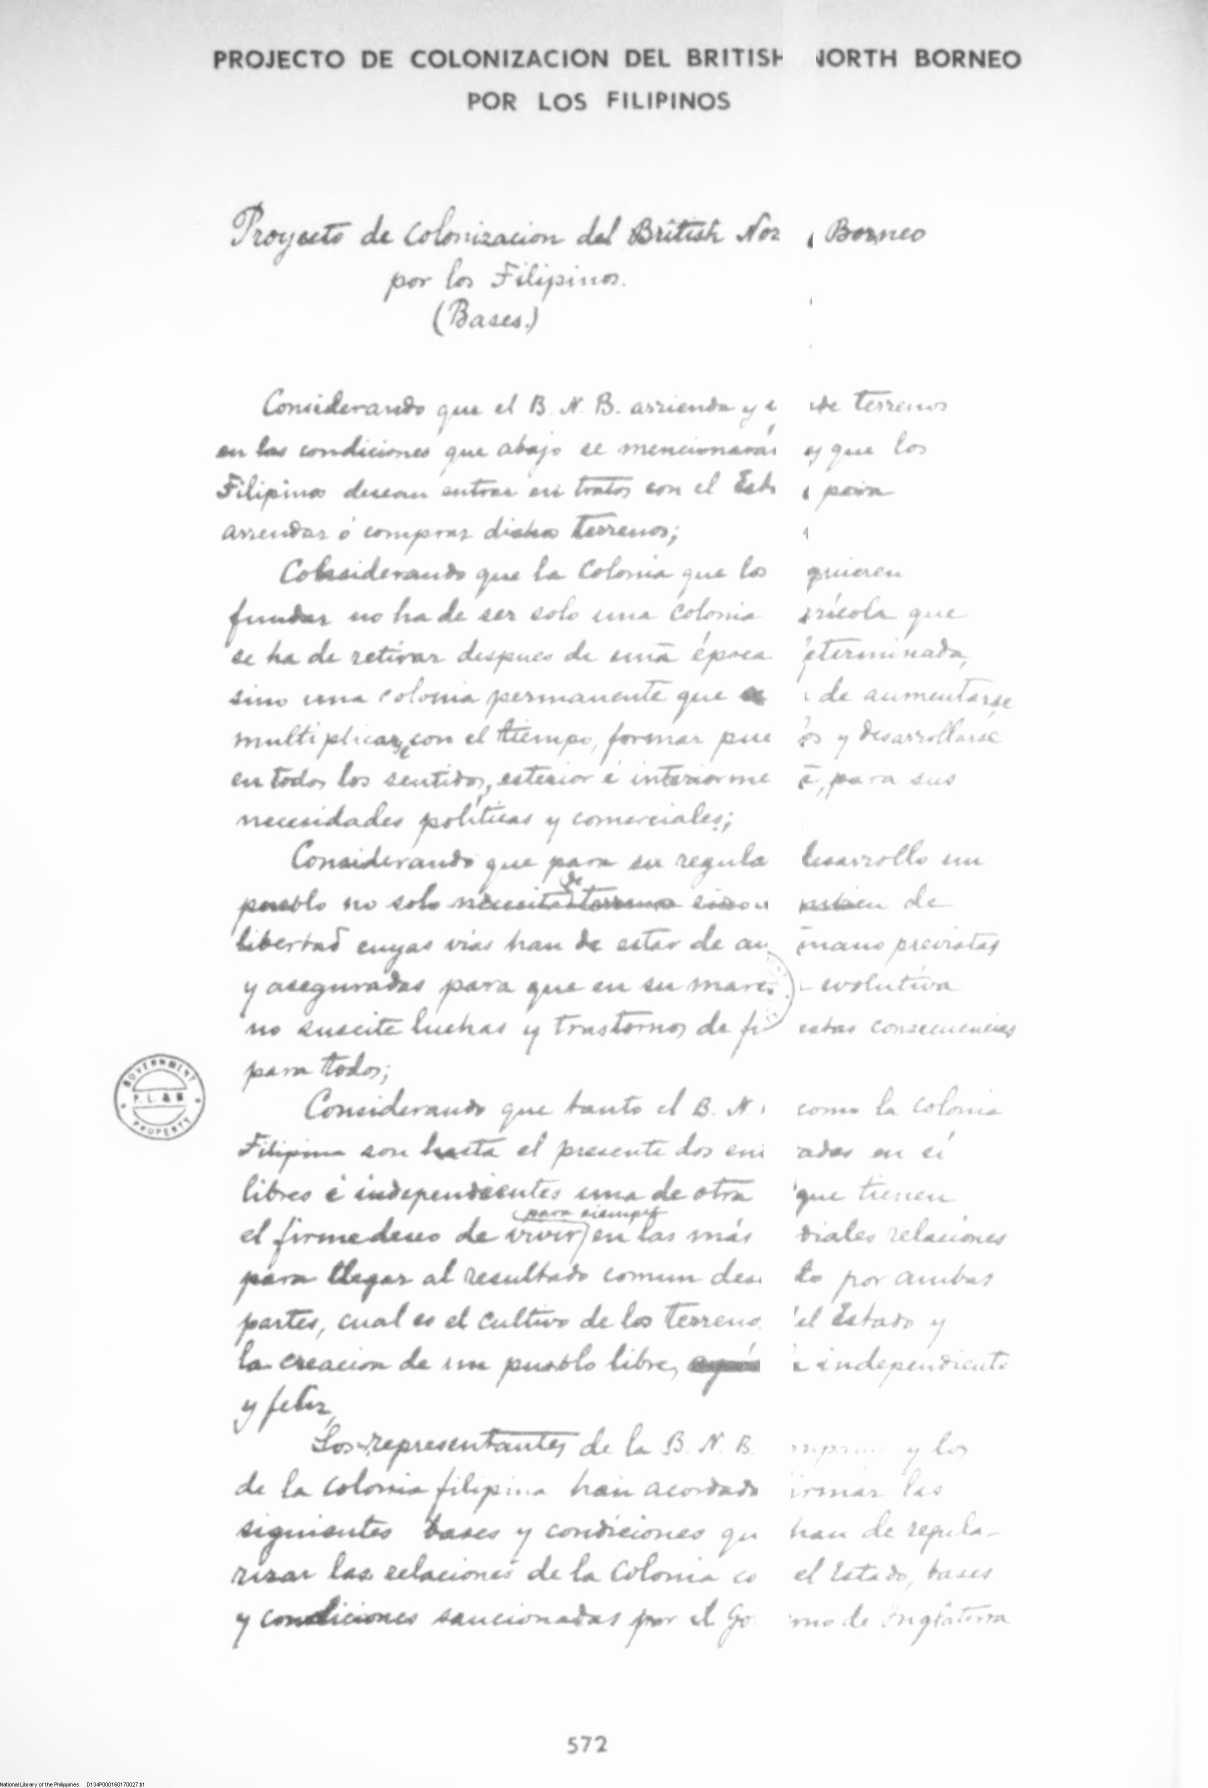 PROJECTO DE COLONIZACION DEL BRITISH NORTH BORNEO
POR LOS FILIPINOS
Proyecto de Colonizacion del British Nor Borneo
por los Filipinos.
(Bases.)
Considerando que el B. N. B. arrienda y terrenos
en las condiciones que abajo se mencionarás y que los
Filipinos desean entrar en tratos con el Est para
arrendar ó comprar dichos terrenos;
Considerando que la Colonia que los quieren
fundar no ha de ser solo una colonia rícola que
se ha de retirar despues de una época eterminada,
sino una colonia permanente que de aumentarse
multiplicarse con el tiempo, formar pue os y desarrollarse
en todos los sentidos, esterior é interiorme e, para sus
necesidades políticas y comerciales;
Considerando que para su regula desarrollo un
pueblo no solo necesita de terrenos sino tambien de
libertad cuyas vias han de estar de an mano previstas
y aseguradas para que en su marc evolutiva
no suscite luchas y trastornos de f estas consecuencias
para todos;
Considerando que tanto el B. N. como la colonia
Filipina son hasta el presente dos en ades en sí
libres é independientes una de otra que tienen
para siempre
el firme deseo de vivir en las más diales relaciones
para llegar al resultado comun des do por ambas
partes, cual es el cultivo de los terreno del Estado y
la creacion de un pueblo libre, é independiente
y feliz,
Los representantes de la B. N. B. y los
de la colonia filipina han acordado irmar las
siguientes bases y condiciones qu han de regula-
rizar las relaciones de la Colonia co el Estado, bases
y condiciones sancionadas por el Go rno de Inglaterra
GOVERNMENT
P. L. & M
PROPERTY
572
National Library of the Philippines